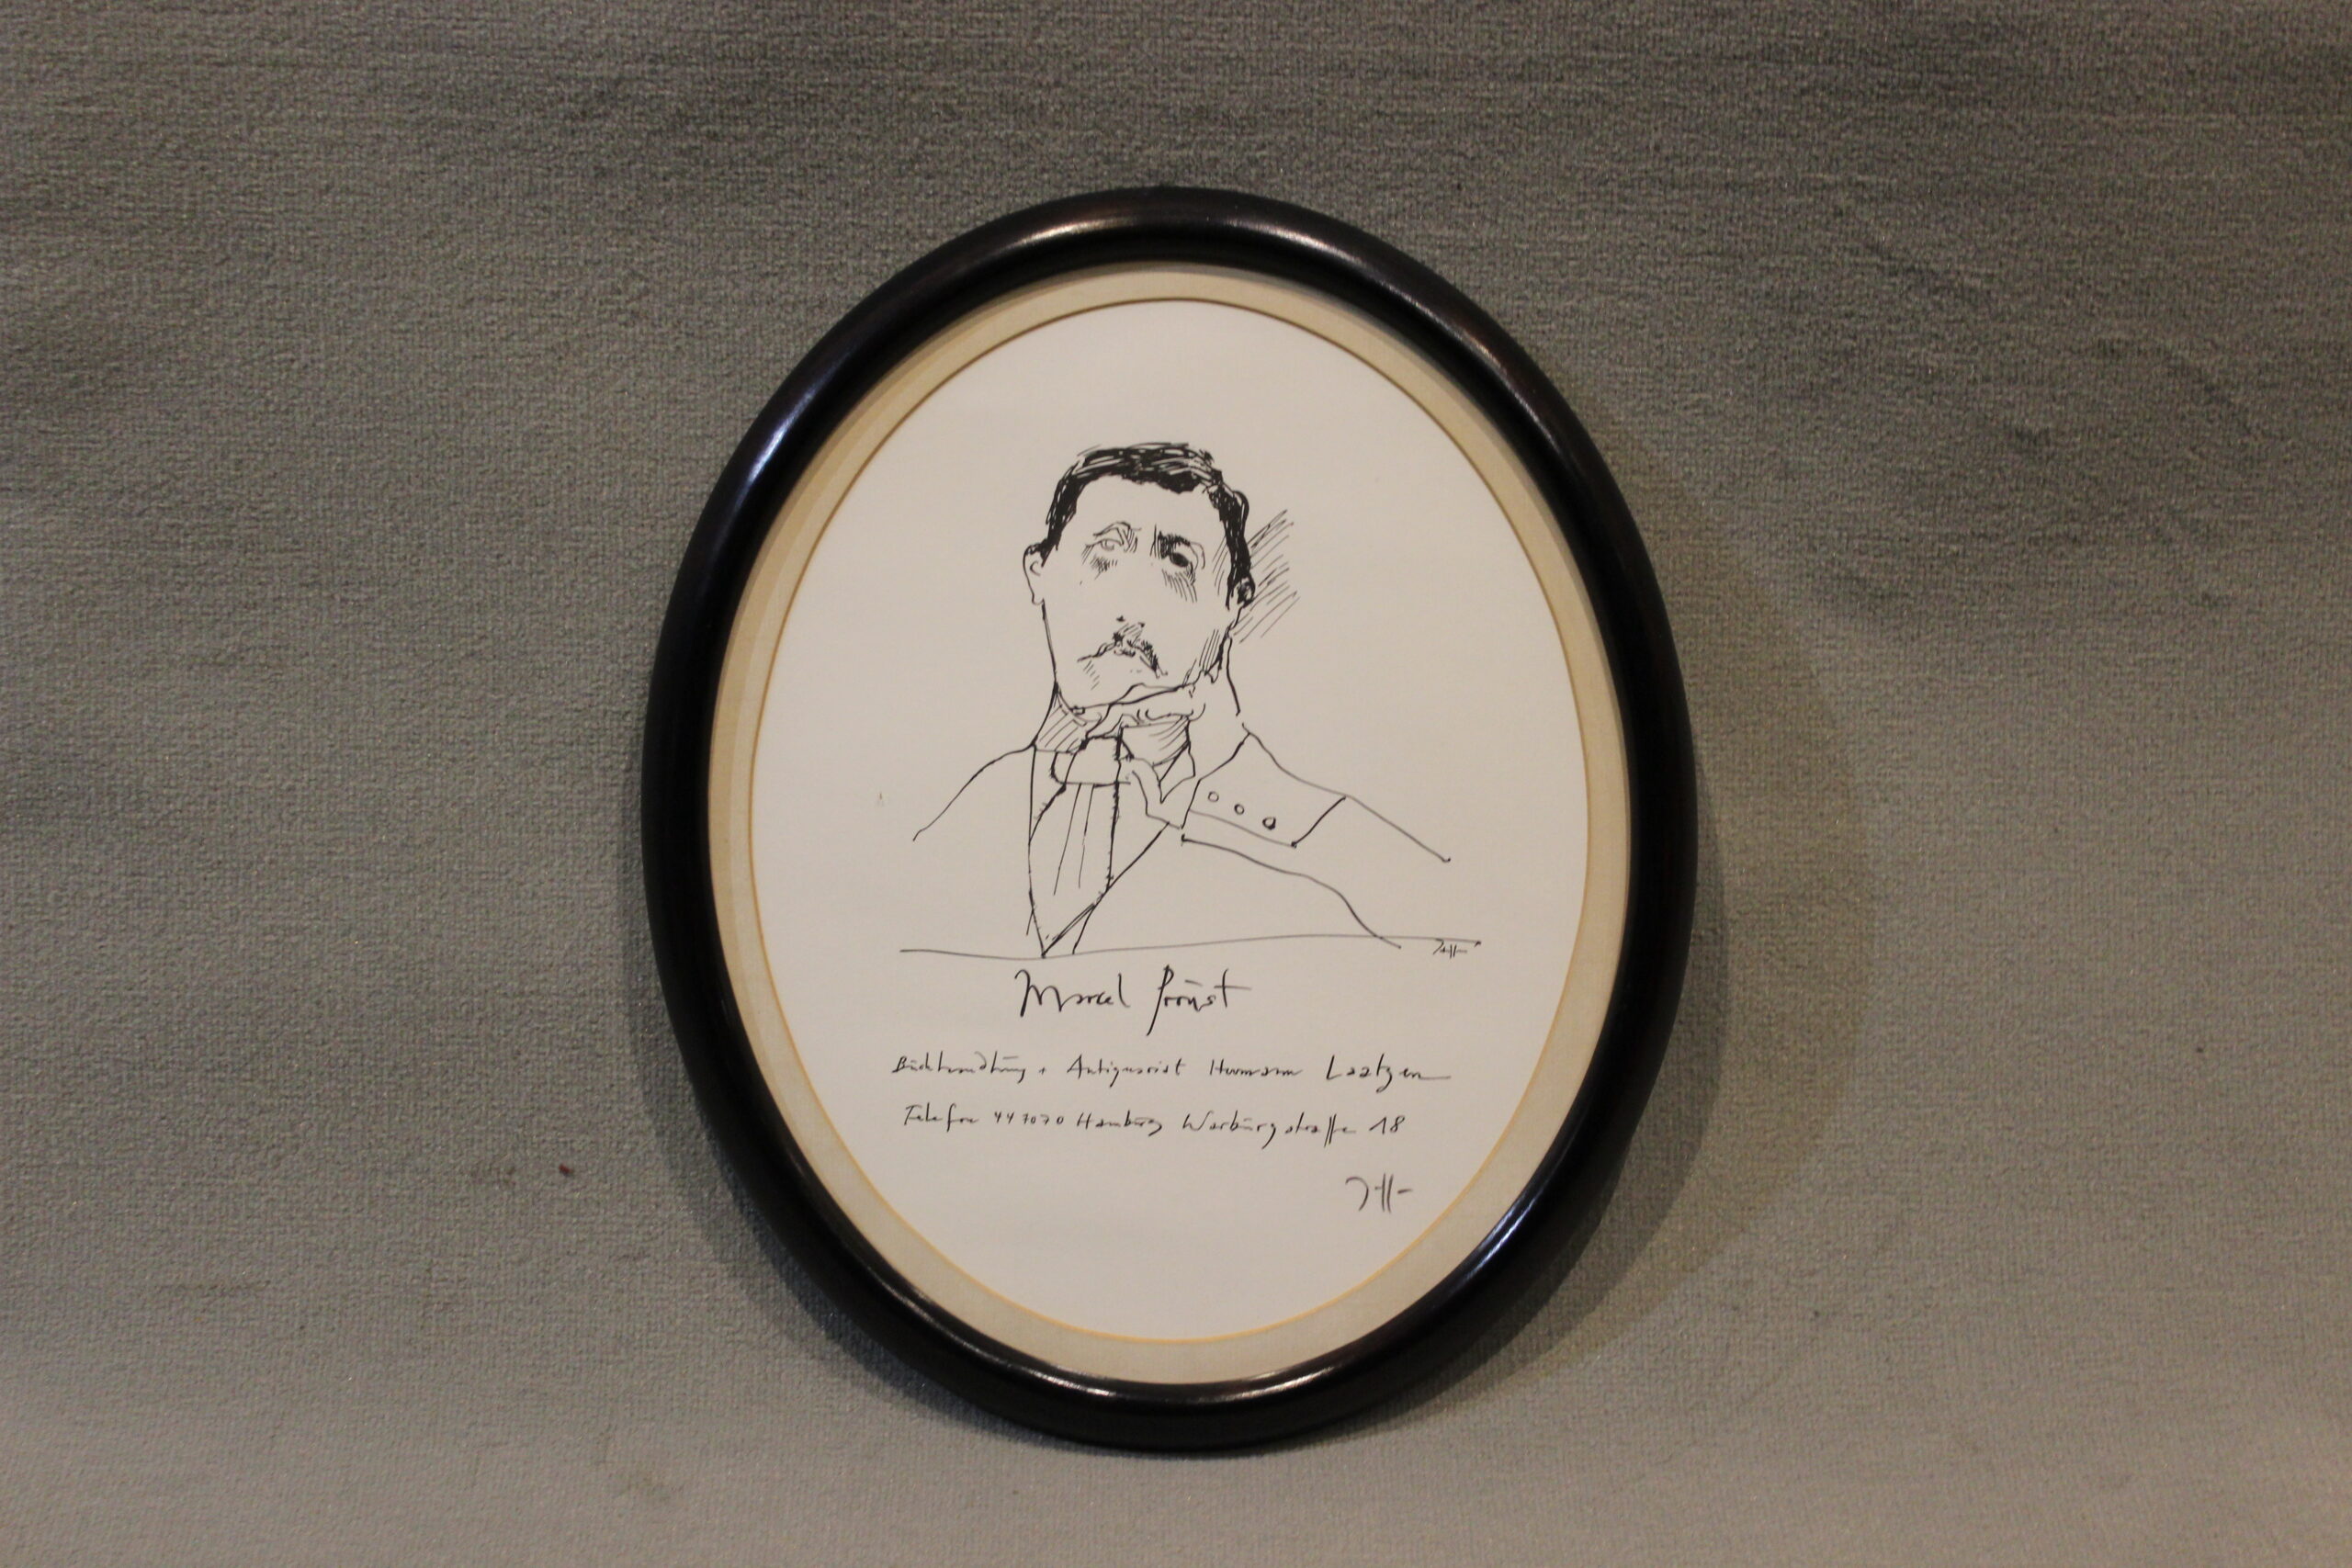 Jªff
Marcel Proust
Buchhandlung + Antiquariat Hermann Laatzen
Telefon 447070 Hamburg Warburgstraße 18